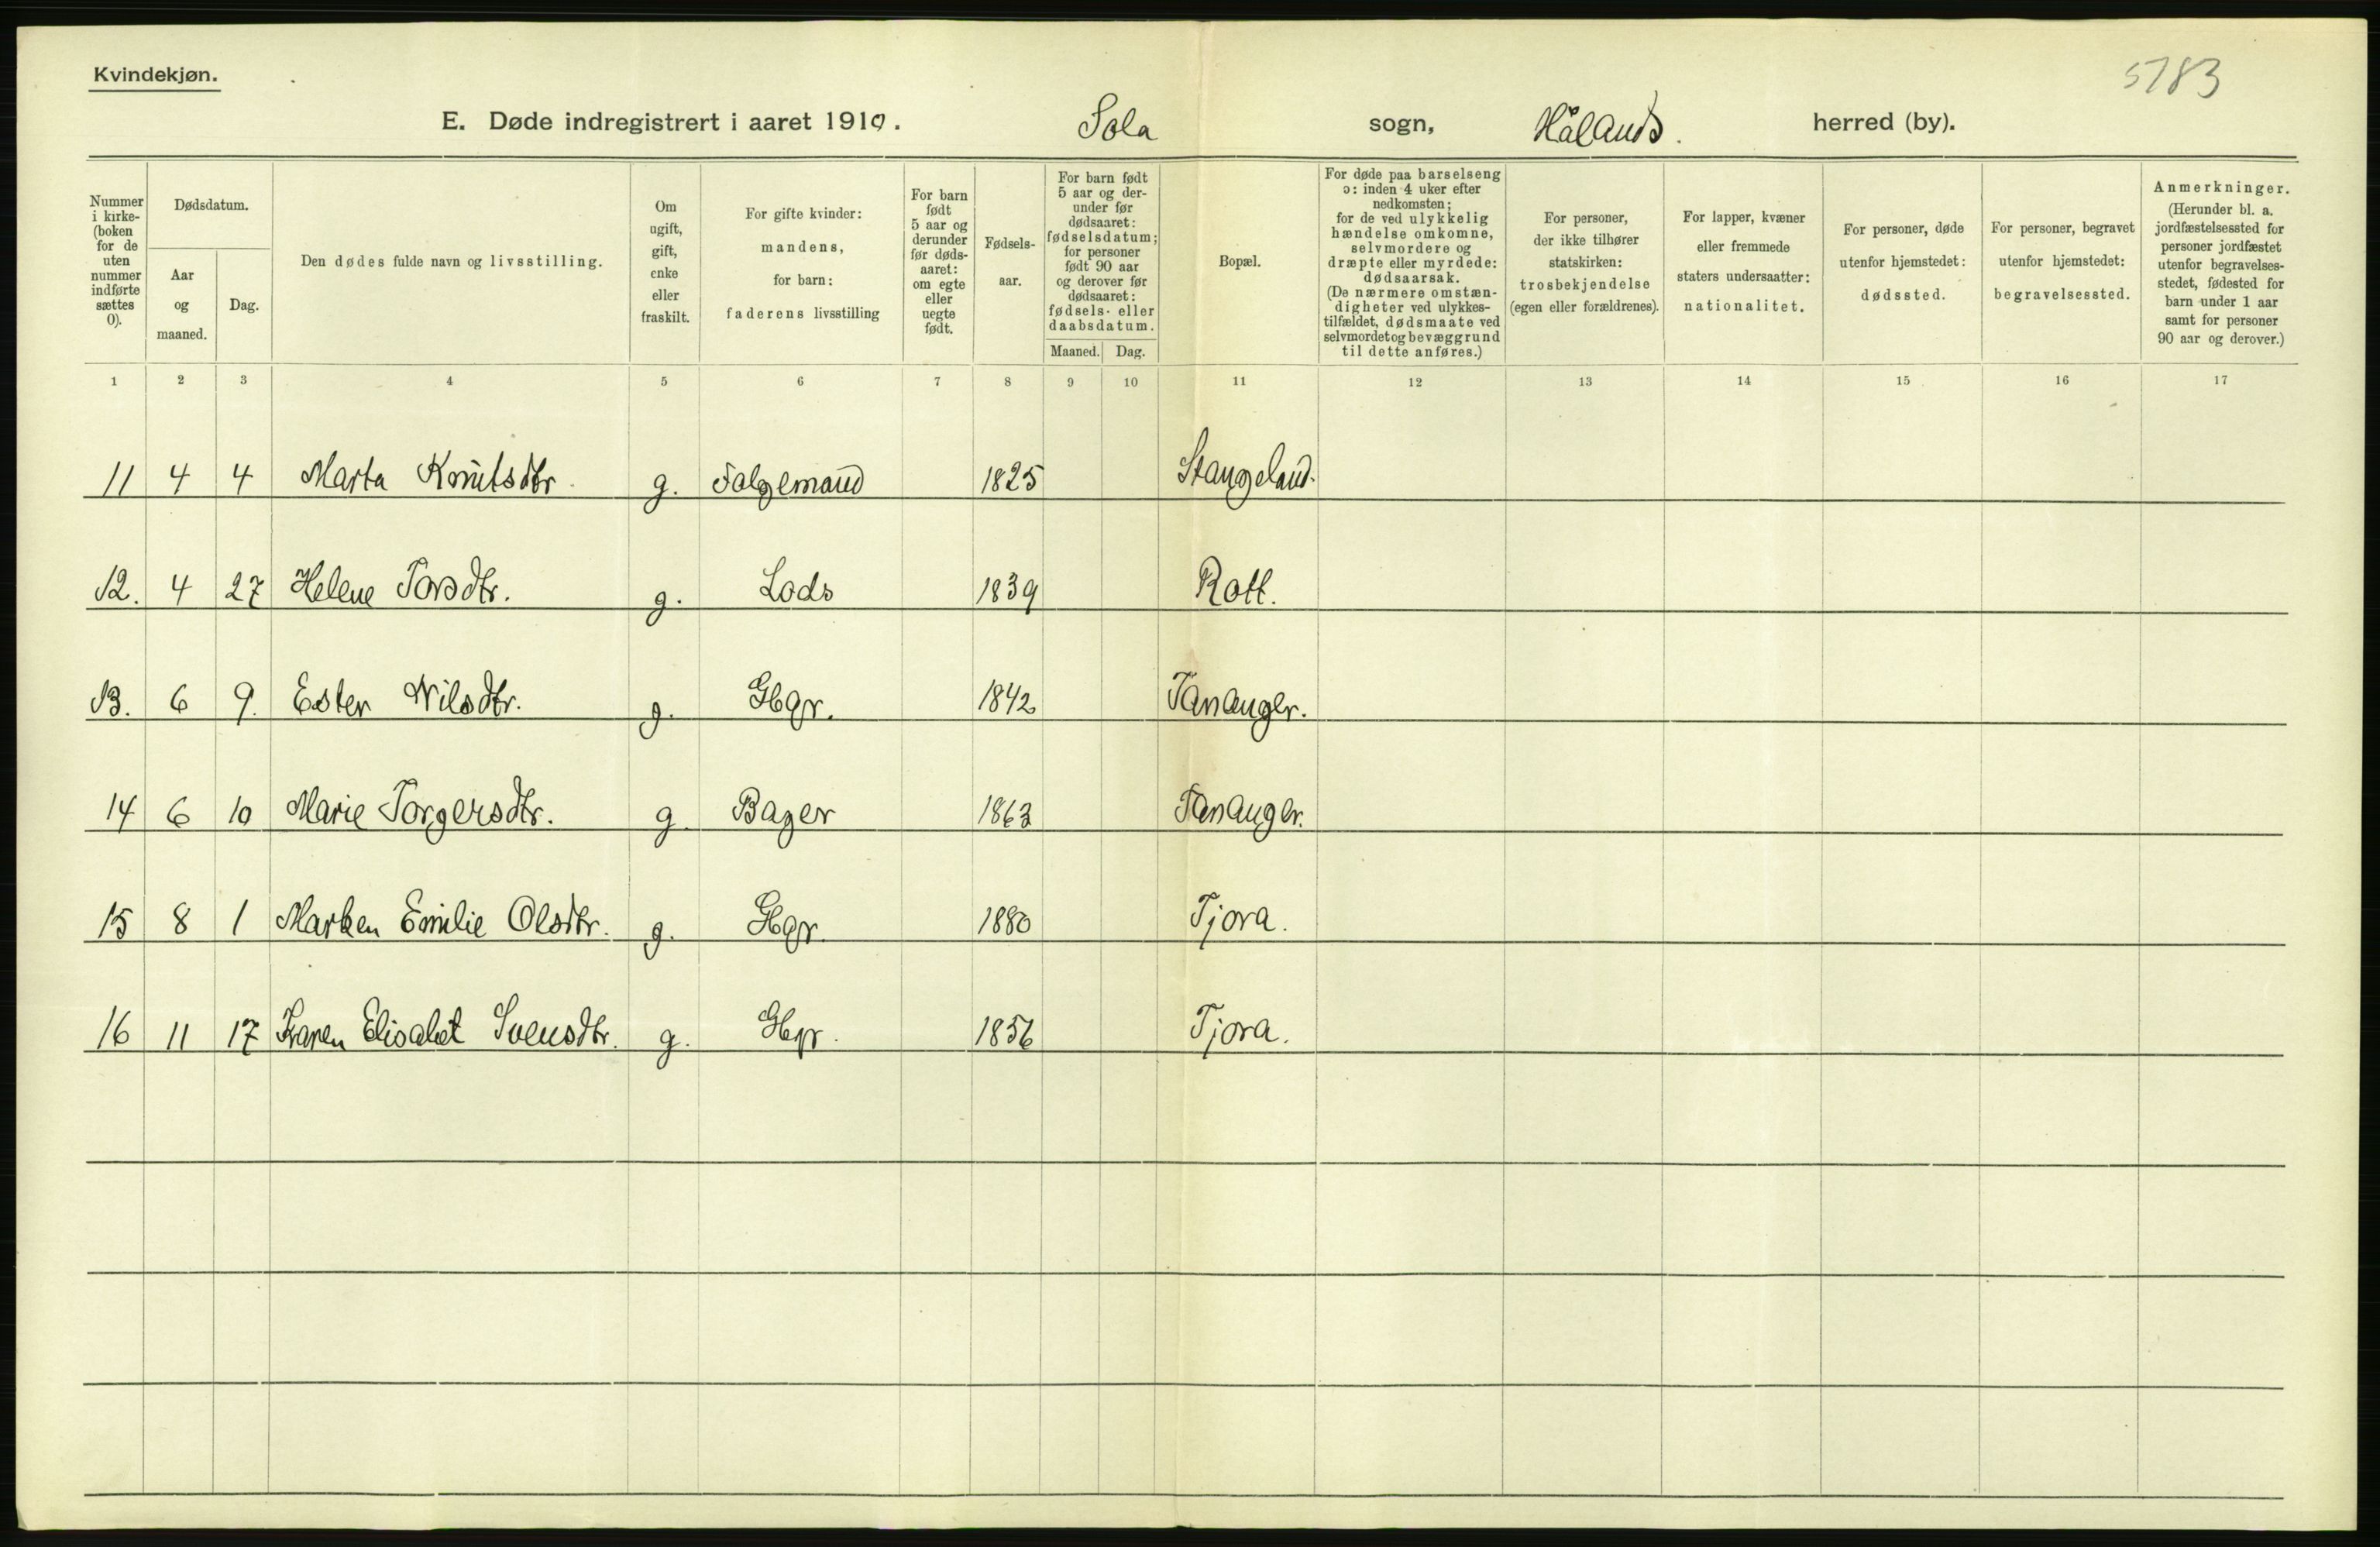 Kvindekjøn.
5783
E. Døde indregistrert i aaret 1910. Sola sogn, Håland. herred (by).
Nummer i kirkeboken for de uten nummer indførte sættes 0).
Dødsdatum.
Aar og maaned.
Dag.
Den dødes fulde navn og livsstilling.
Om ugift, gift, enke eller fraskilt.
For gifte kvinder: mandens, for barn: faderens livsstilling
For barn født 5 aar og derunder før dødsaaret: om egte eller uegte født.
Fødselsaar.
For barn født 5 aar og derunder før dødsaaret: fødselsdatum; for personer født 90 aar og derover før dødsaaret: fødsels- eller daabsdatum.
Maaned. Dag.
Bopæl.
For døde paa barselseng ɔ: inden 4 uker efter nedkomsten; for de ved ulykkelig hændelse omkomne, selvmordere og dræpte eller myrdede: dødsaarsak. (De nærmere omstændigheter ved ulykkestilfældet, dødsmaate ved selvmordet og bevæggrund til dette anføres.)
For personer, der ikke tilhører statskirken: trosbekjendelse (egen eller forældrenes).
For lapper, kvæner eller fremmede staters undersaatter: nationalitet.
For personer, døde utenfor hjemstedet: dødssted.
For personer, begravet utenfor hjemstedet: begravelsessted.
Anmerkninger. (Herunder bl. a. jordfæstelsessted for personer jordfæstet utenfor begravelsesstedet, fødested for barn under 1 aar samt for personer 90 aar og derover.)
1 2 3 4 5 6 7 8 9 10 11 12 13 14 15 16 17
11 4 4 Marta Knutsdtr. g. Folgemand 1825 Stangeland.
12. 4 27 Helene Torsdtr. g. Lods 1839 Rott.
13. 6 9. Ester Nilsdtr. g. Gbgr. 1842 Tananger.
14 6 10 Marie Torgersdtr. g. Bager 1863 Tananger.
15 8 1 Marken Emilie Olsdtr. g. Gbgr. 1880 Tjora.
16 11 17 Karen Elisabet Svensdtr. g. Gbgr. 1856 Tjora.